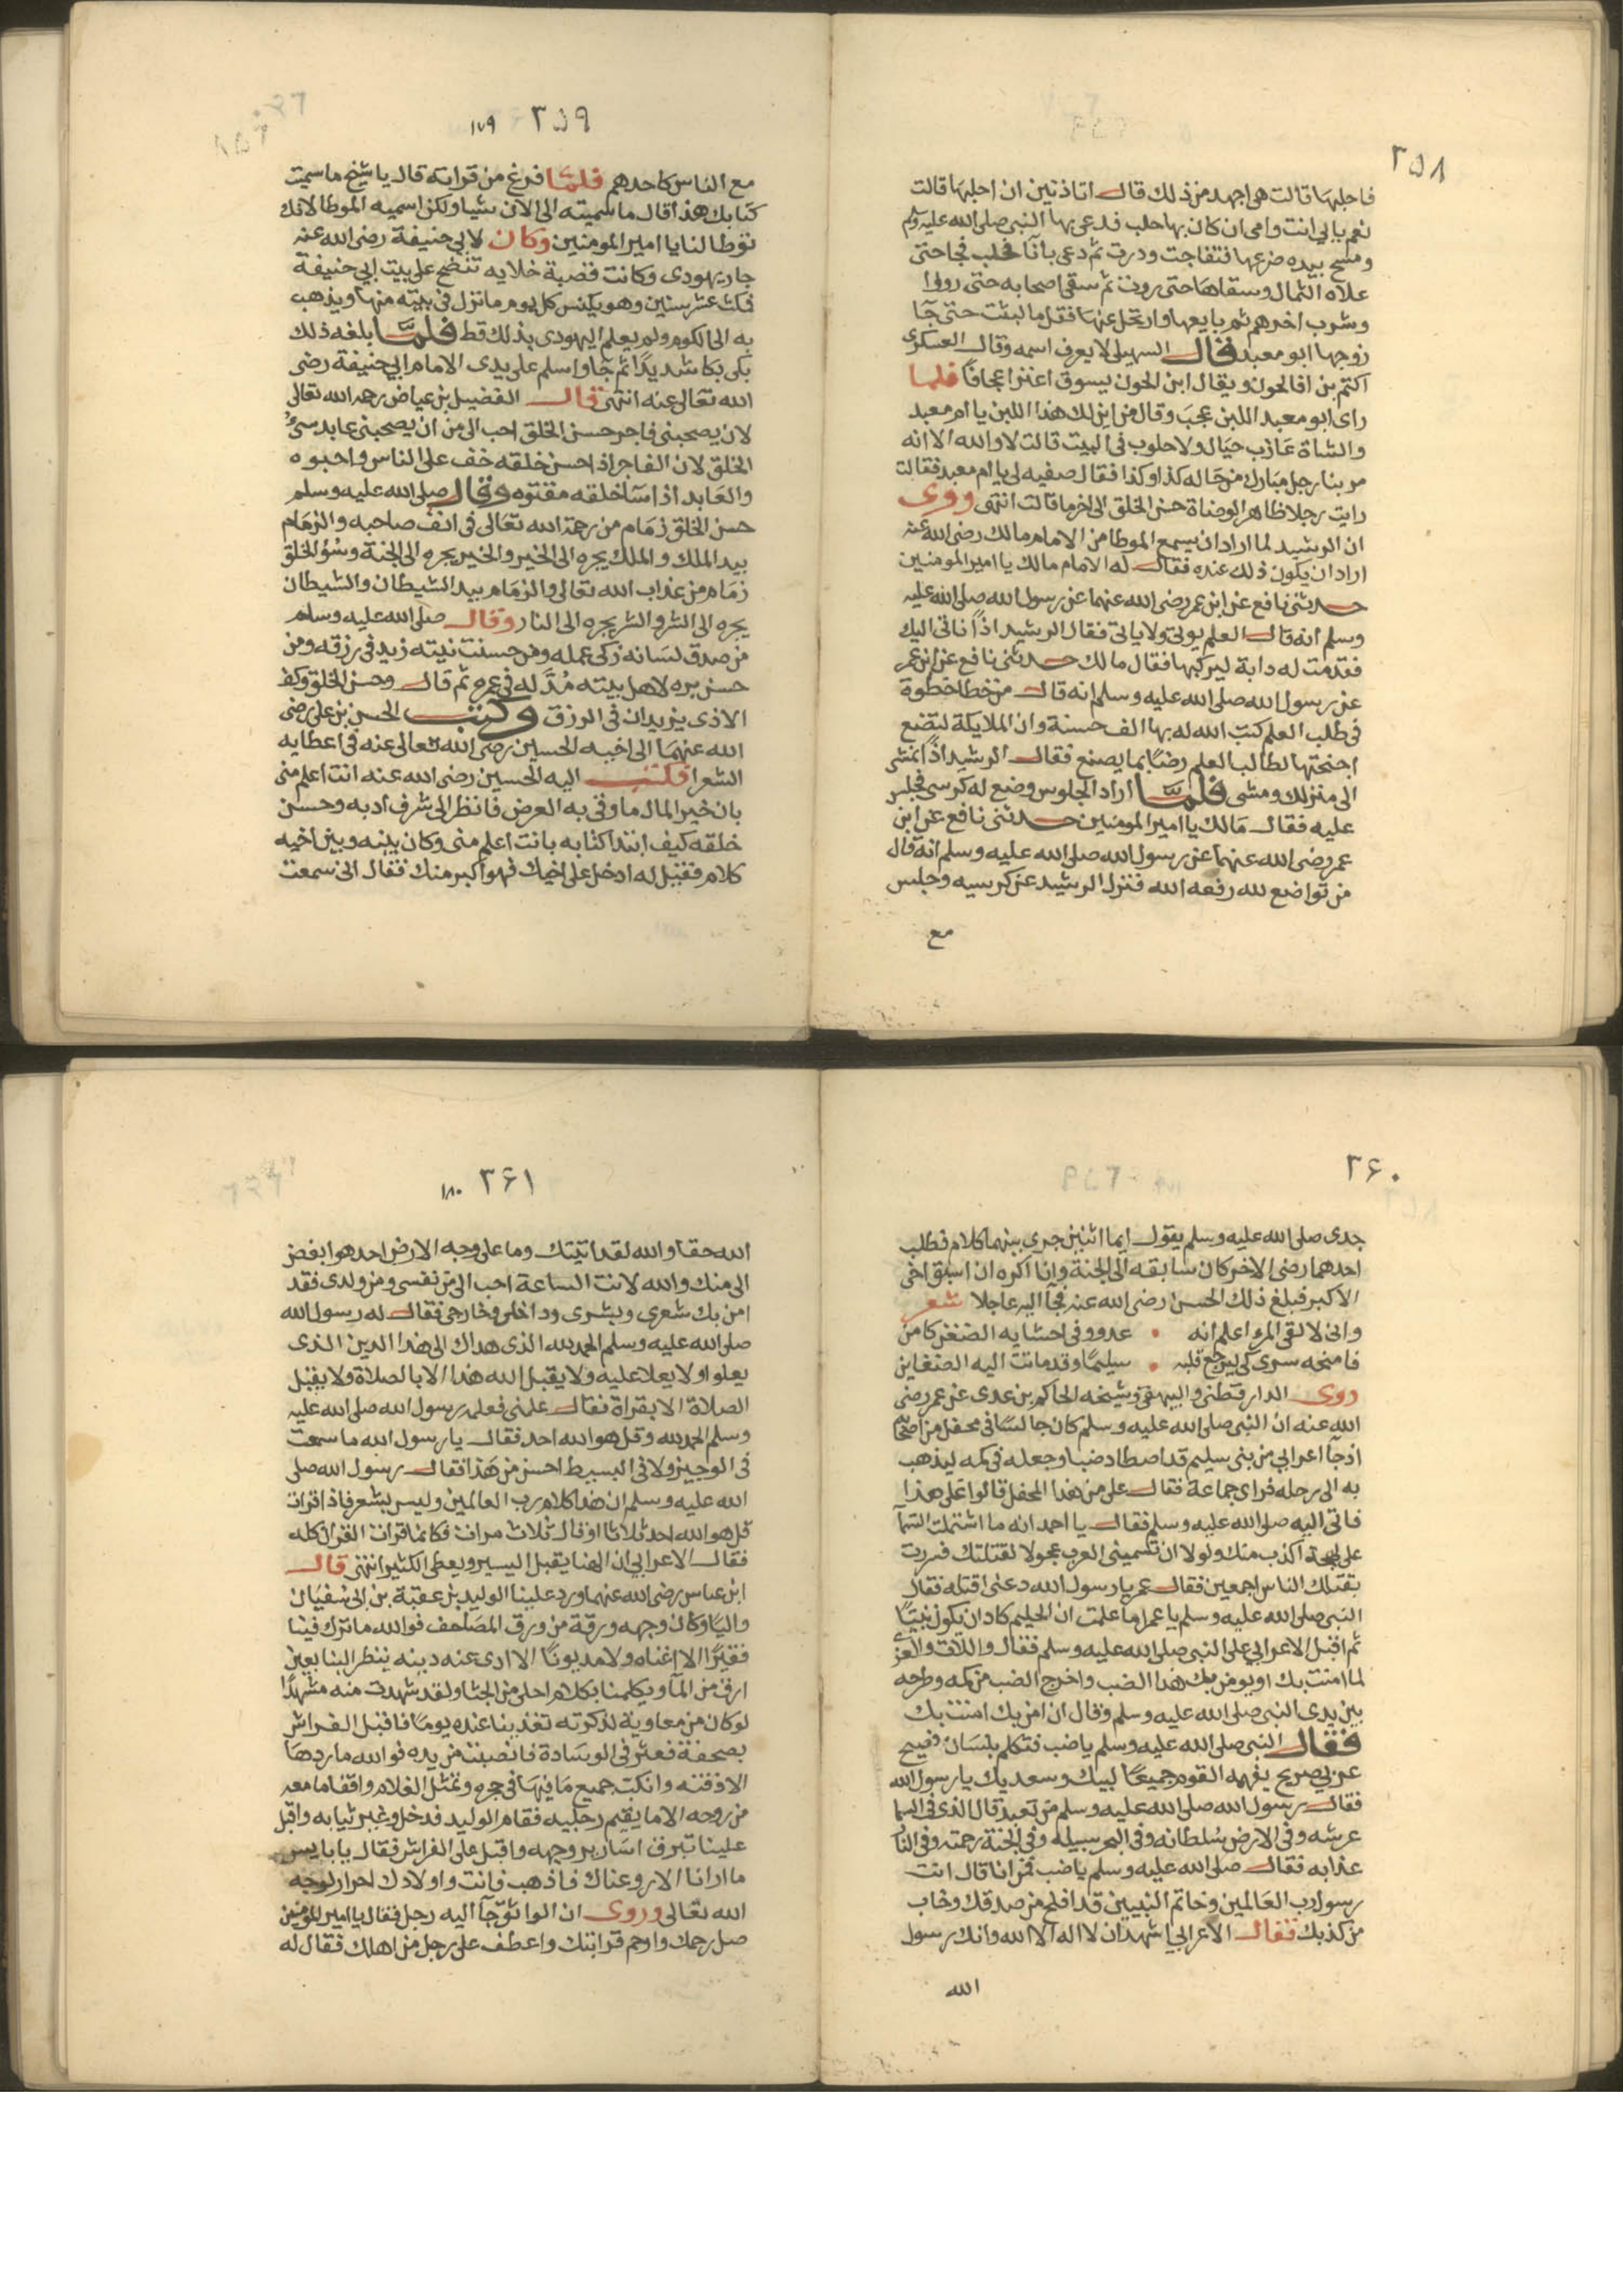 ٢٥٨
فاحلبها قالت هي اجهد من ذلك قال اتاذنين ان احلبها قالت
نعم بابي انت وامي ان كان بها حلب فدعى بها النبي صلى الله عليه وسلم
ومسح بيده ضرعها فتفاجت ودرت ثم دعى باناء فحلب فجا حتى
علاه الثمال وسقاها حتى رويت ثم سقى اصحابه حتى رووا
وشرب اخرهم ثم بايعها وارتحل عنها فقل ما لبثت حتى جا
زوجها ابو معبد قال السهيلي لا يعرف اسمه وقال العسكرى
اكثم بن ابي الجون ويقال ابن الجون يسوق اعنزا عجافا فلما
راى ابو معبد اللبن عجب وقال من اين لك هذا اللبن يا ام معبد
والشاة عازب حيال ولا حلوب في البيت قالت لا والله الا انه
مر بنا رجل مبارك من حاله كذا وكذا فقال صفيه لي يا ام معبد فقالت
رايت رجلا ظاهر الوضاة حسن الخلق الى اخر ما قالت انتهى وروى
ان الرشيد لما اراد ان يسمع الموطا من الامام مالك رضى الله عنه
اراد ان يكون ذلك عنده فقال له الامام مالك يا امير المومنين
حدثنى نافع عن ابن عمر رضى الله عنهما عن رسول الله صلى الله عليه
وسلم انه قال العلم يوتى ولا ياتى فقال الرشيد اذا ناتى اليك
فقدمت له دابة ليركبها فقال مالك حدثنى نافع عن ابن عمر
عن رسول الله صلى الله عليه وسلم انه قال من خطا خطوة
فى طلب العلم كتب الله له بها الف حسنة وان الملايكة لتضع
اجنحتها لطالب العلم رضا بما يصنع فقال الرشيد اذا نمشى
الى منزلك ومشى فلما اراد الجلوس وضع له كرسى فجلس
عليه فقال مالك يا امير المومنين حدثنى نافع عن ابن
عمر رضى الله عنهما عن رسول الله صلى الله عليه وسلم انه قال
من تواضع لله رفعه الله فنزل الرشيد عن كرسيه وجلس
مع
٢٥٩ ١٧٩
مع الناس كاحدهم فلما فرغ من قراته قال يا شيخ ما سميت
كتابك هذا قال ما سميته الى الان شيا ولكن اسميه الموطا لانك
توطا لنا يا امير المومنين وكان لابي حنيفة رضى الله عنه
جار يهودى وكانت قصبة خلايه تنضح على بيت ابي حنيفة
فمكث عشر سنين وهو يكنس كل يوم ما نزل فى بيته منها ويذهب
به الى الكوم ولم يعلم اليهودى بذلك قط فلما بلغه ذلك
بكى بكا شديدا ثم جا واسلم على يدى الامام ابي حنيفة رضى
الله تعالى عنه انتهى قال الفضيل بن عياض رحمه الله تعالى
لان يصحبنى فاجر حسن الخلق احب الى من ان يصحبنى عابد سئ
الخلق لان الفاجر اذا حسن خلقه خف على الناس واحبوه
والعابد اذا سآ خلقه مقتوه وقال صلى الله عليه وسلم
حسن الخلق زمام من رحمة الله تعالى فى انف صاحبه والزمام
بيد الملك والملك يجره الى الخير والخير يجره الى الجنة وسؤ الخلق
زمام من عذاب الله تعالى والزمام بيد الشيطان والشيطان
يجره الى الشر والشر يجره الى النار وقال صلى الله عليه وسلم
من صدق لسانه زكى عمله ومن حسنت نيته زيد فى رزقه ومن
حسن بره لاهل بيته مد له فى عمره ثم قال وحسن الخلق وكف
الاذى يزيدان فى الرزق وكتب الحسن بن على رضى
الله عنهما الى اخيه الحسين رضى الله تعالى عنه فى اعطايه
الشعرا فكتب اليه الحسين رضى الله عنه انت اعلم منى
بان خير المال ما وقى به العرض فانظر الى شرف ادبه وحسن
خلقه كيف ابتدا كتابه بانت اعلم منى وكان بينه وبين اخيه
كلام فقيل له ادخل على اخيك فهو اكبر منك فقال انى سمعت
٢٦٠
جدى صلى الله عليه وسلم يقول ايما اثنين جرى بينهما كلام فطلب
احدهما رضى الاخر كان سابقه الى الجنة وانا اكره ان اسبق اخى
الاكبر فبلغ ذلك الحسن رضى الله عنه فجآ اليه عاجلا شعر
وانى لالقى المرء اعلم انه • عدو وفى احشايه الضغن كامن
فامنحه بشرى كى ليرجع قلبه • سليما وقد ماتت اليه الضغاين
روى الدارقطنى والبيهقى وشيخه الحاكم بن عدى عن عمر رضى
الله عنه ان النبى صلى الله عليه وسلم كان جالسا فى محفل من اصحابه
اذ جآ اعرابى من بنى سليم قد اصطاد ضبا وجعله فى كمه ليذهب
به الى رحله فراى جماعة فقال على من هذا المحفل قالوا على هذا
فاتى اليه صلى الله عليه وسلم فقال يا احمد انه ما اشتملت النسآ
على لهجة اكذب منك ولولا ان تسمينى العرب عجولا لقتلتك فسررت
بقتلك الناس اجمعين فقال عمر يا رسول الله دعنى اقتله فقال
النبى صلى الله عليه وسلم يا عمر اما علمت ان الحليم كاد ان يكون نبيا
ثم اقبل الاعرابى على النبى صلى الله عليه وسلم فقال واللات والعزى
لما امنت بك او يومن بك هذا الضب واخرج الضب من كمه وطرحه
بين يدى النبى صلى الله عليه وسلم وقال ان امن بك امنت بك
فقال النبى صلى الله عليه وسلم يا ضب فتكلم بلسان فصيح
عربى صريح يفهمه القوم جميعا لبيك وسعديك يا رسول الله
فقال رسول الله صلى الله عليه وسلم من تعبد قال الذى فى السما
عرشه وفى الارض سلطانه وفى البحر سبيله وفى الجنة رحمته وفى النار
عذابه فقال صلى الله عليه وسلم يا ضب فمن انا قال انت
رسول رب العالمين وخاتم النبيين قد افلح من صدقك وخاب
من كذبك فقال الاعرابى اشهد ان لا اله الا الله وانك رسول
الله
٢٦١ ١٨٠
الله حقا والله لقد اتيتك وما على وجه الارض احد هو ابغض
الى منك والله لانت الساعة احب الى من نفسى ومن ولدى فقد
امن بك شعرى وبشرى وداخلى وخارجى فقال له رسول الله
صلى الله عليه وسلم الحمد لله الذى هداك الى هذا الدين الذى
يعلوا ولا يعلا عليه ولا يقبل الله هذا الا بالصلاة ولا يقبل
الصلاة الا بقراة فقال علمنى فعلمه رسول الله صلى الله عليه
وسلم الحمد لله وقل هو الله احد فقال يا رسول الله ما سمعت
فى الوجيز ولا فى البسيط احسن من هذا فقال رسول الله صلى
الله عليه وسلم ان هذا كلام رب العالمين وليس بشعر فاذا قرات
قل هو الله احد ثلاثا او قال ثلاث مرات فكانما قرات القران كله
فقال الاعرابى ان الهنا يقبل اليسير ويعطى الكثير انتهى قال
ابن عباس رضى الله عنهما ورد علينا الوليد بن عقبة بن ابى سفيان
واليا وكان وجهه ورقة من ورق المصاحف فوالله ما ترك فينا
فقيرا الا اغناه ولا مديونا الا ادى عنه دينه ينظر الينا بعين
ارق من المآ ويكلمنا بكلام احلى من الجنا ولقد شهدت منه مشهدا
لو كان من معاوية لذكرته تغدينا عنده يوما فاقبل الفراش
بصحفة فعثر فى الوسادة فانصبت من يده فوالله ما ردها
الا ذقنه وانكب جميع ما فيها فى حجره ومثل الغلام واقفا ما معه
من روحه الا ما يقيم رجليه فقام الوليد فدخل وغير ثيابه واقبل
علينا تبرق اسارير وجهه واقبل على الفراش فقال يا بايس
ما ارانا الا روعناك فاذهب فانت واولادك احرار لوجه
الله تعالى وروى ان الواثق جآ اليه رجل فقال يا امير المومنين
صل رحمك وارحم قرابتك واعطف على رجل من اهلك فقال له